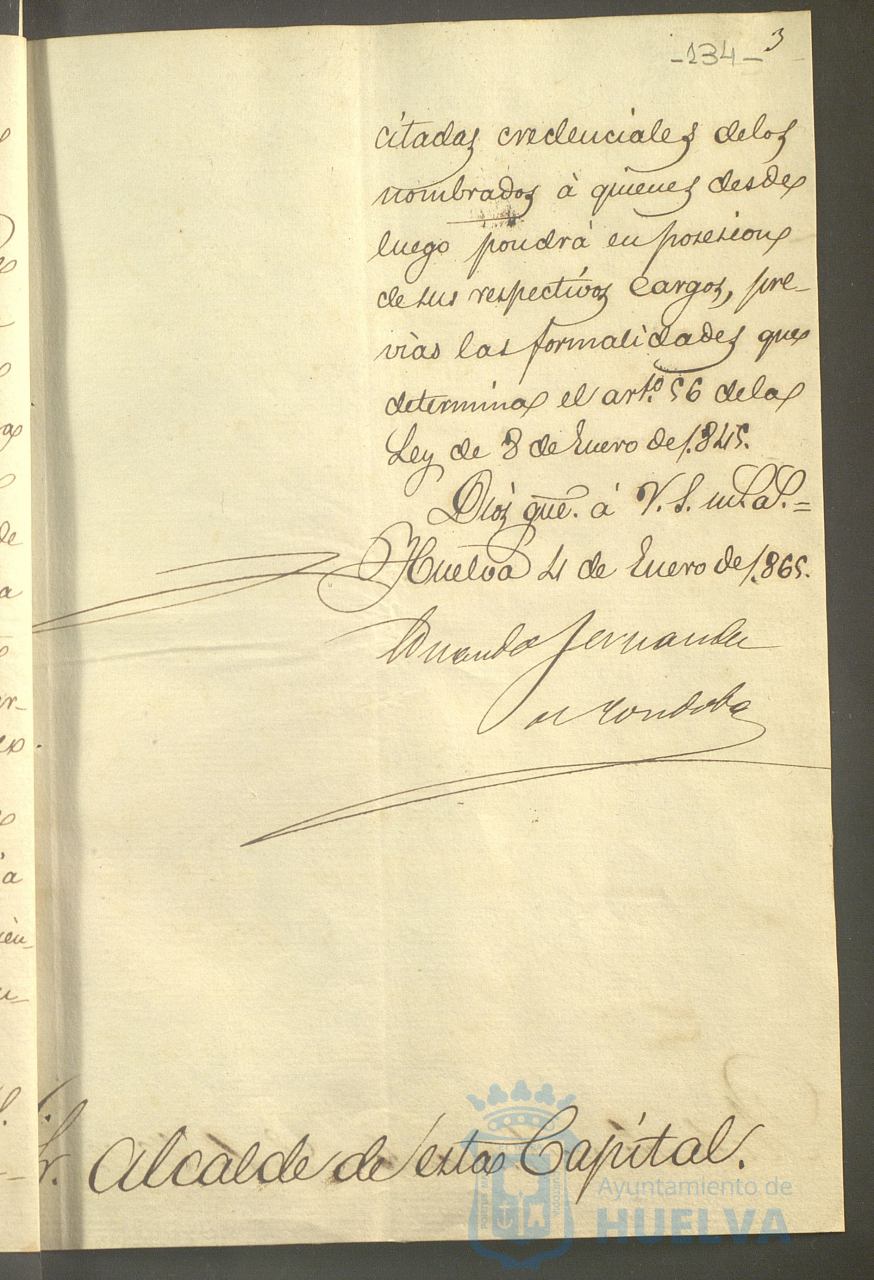 -134- 3
citadas credenciales de los
nombrados á quienes desde
luego pondrá en posesion
de sus respectivos Cargos, pre-
vias las formalidades que
determina el artº. 56 de la
Ley de 8 de Enero de 1.845.
Dios gue. á V. S. ms. as.=
Huelva 4 de Enero de 1.865.
Fernandez
de Cordoba
Sr. Alcalde de esta Capital.
Ayuntamiento de
HUELVA